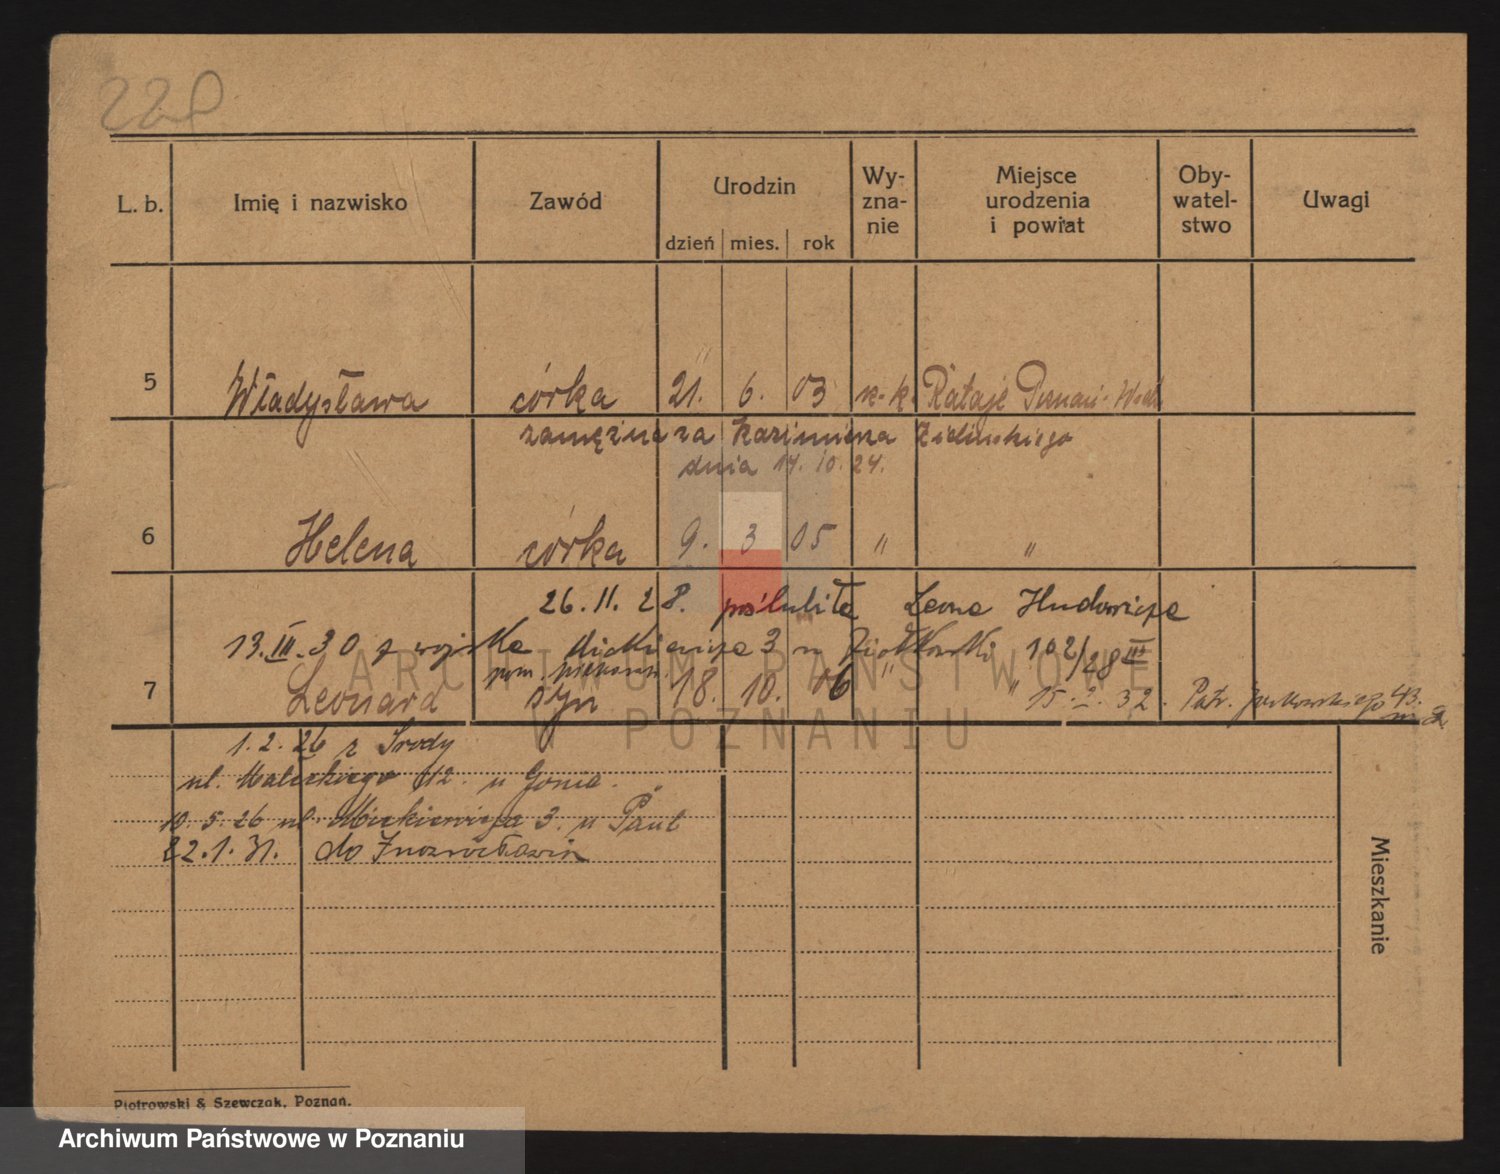 228
L. b. Imię i nazwisko Zawód Urodzin dzień mies. rok Wy-zna-nie Miejsce urodzenia i powiat Oby-watel-stwo Uwagi
5 Władysława córka 21. 6. 03 k. k. Rataje Poznań-Wsch.
zamężna za Kazimierza Zielińskiego
dnia 14. 10. 24.
6 Helena córka 9. 3 05 " "
26. 11. 28. poślubiła Leona Hudowicza
13. III. 30 z wojska Mickiewicza 3 u Ziółkowski 102/28 III
pom. piekarsk.
7 Leonard syn 18. 10. 06 " " 15. 32. Patr. Jackowskiego 43.
1. 2. 26 z Środy
ul. Małeckiego 12. u Gonia.
10. 5. 26 ul. Mickiewicza 3. u Paul
22. 1. 31. do Inowrocławia
Mieszkanie
Piotrowski & Szewczak, Poznań.
ARCHIWUM PAŃSTWOWE
W POZNANIU
Archiwum Państwowe w Poznaniu